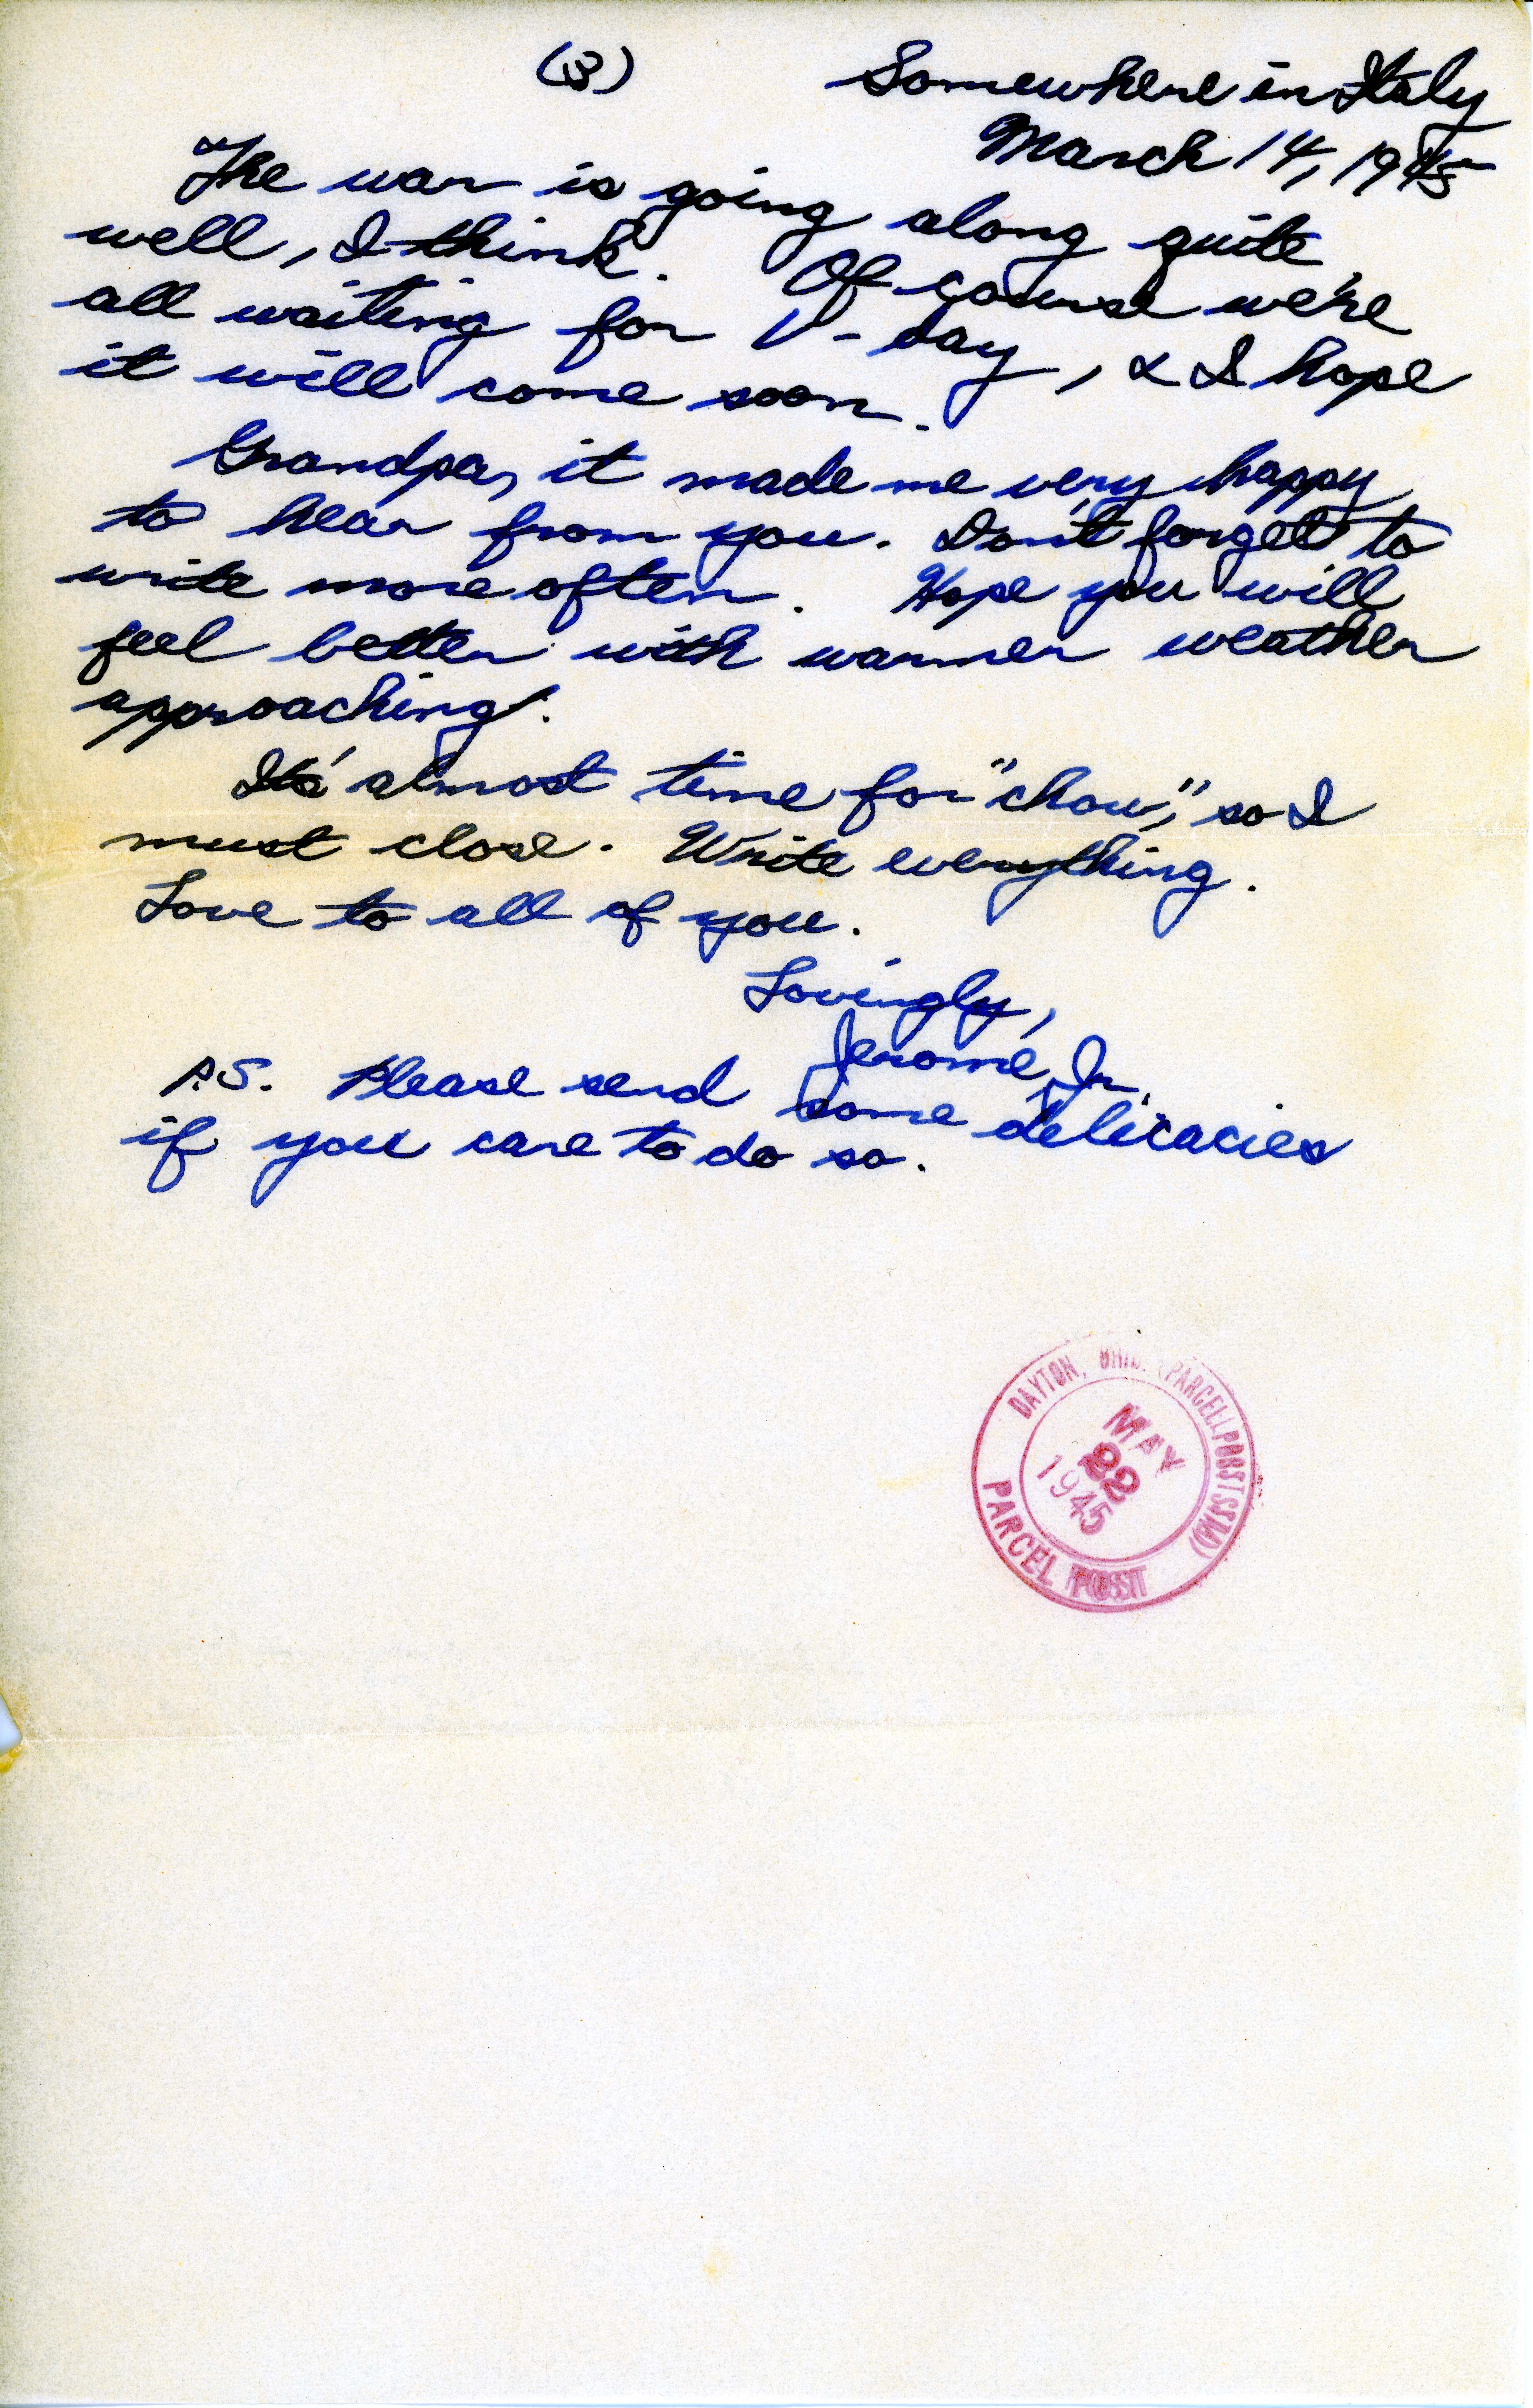 (3)
Somewhere in Italy
March 14, 1945
The war is going along quite
well, I think. Of course we're
all waiting for V-day, & I hope
it will come soon.
Grandpa, it made me very happy
to hear from you. Don't forget to
write more often. Hope you will
feel better with warmer weather
approaching.
It's almost time for "chow," so I
must close. Write everything.
Love to all of you.
Lovingly,
Jerome, Jr.
P.S. Please send some delicacies
if you care to do so.
DAYTON, OHIO (PARCEL POST STA)
MAY
22
1945
PARCEL POST